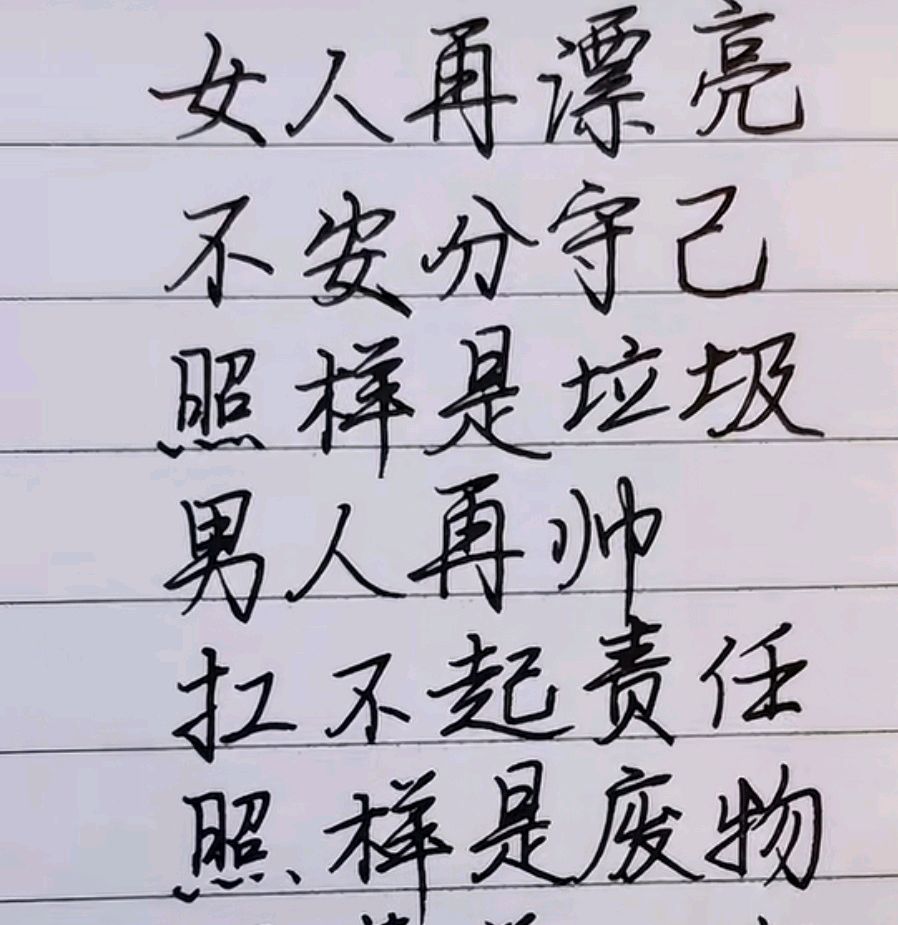 女人再漂亮
不安分守己
照样是垃圾
男人再帅
扛不起责任
照样是废物